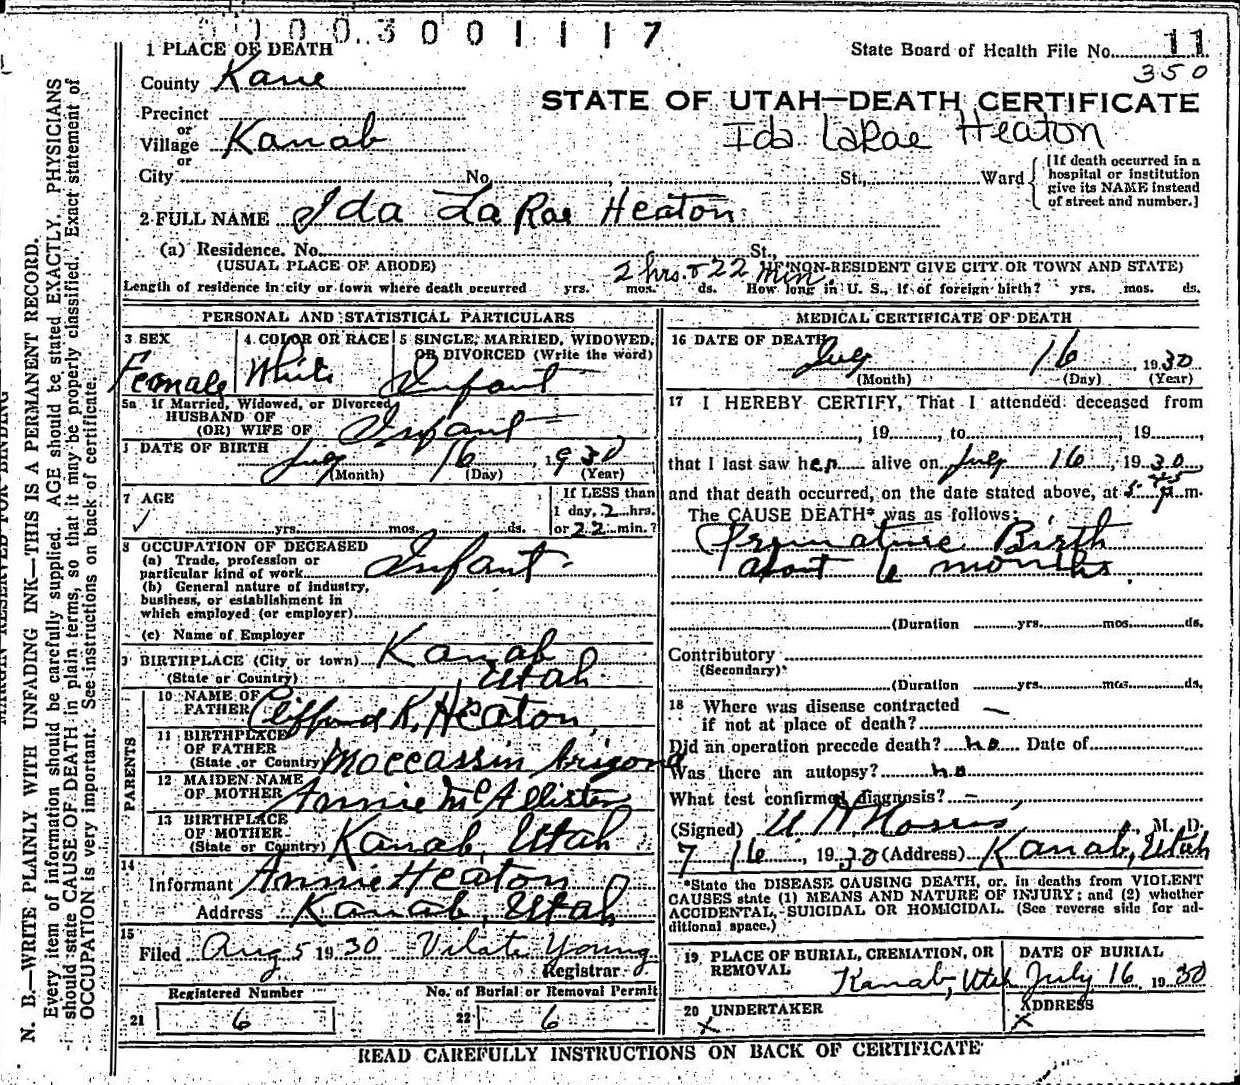 0100.3001117
1 PLACE OF DEATH
State Board of Health File No. 11
350
County Kane
STATE OF UTAH—DEATH CERTIFICATE
Precinct
or
Village Kanab
Ida LaRae Heaton
or
City No. St., Ward
[If death occurred in a hospital or institution give its NAME instead of street and number.]
2 FULL NAME Ida LaRae Heaton
(a) Residence. No. St.,
(USUAL PLACE OF ABODE) (IF NON-RESIDENT GIVE CITY OR TOWN AND STATE)
2 hrs. & 22 min.
Length of residence in city or town where death occurred yrs. mos. ds. How long in U. S., if of foreign birth? yrs. mos. ds.
PERSONAL AND STATISTICAL PARTICULARS
3 SEX 4 COLOR OR RACE 5 SINGLE, MARRIED, WIDOWED, OR DIVORCED (Write the word)
Female White Infant
5a If Married, Widowed, or Divorced
HUSBAND OF
(OR) WIFE OF Infant
DATE OF BIRTH
July 16 1930
(Month) (Day) (Year)
7 AGE
yrs. mos. ds.
If LESS than
1 day, 2 hrs.
or 22 min.?
8 OCCUPATION OF DECEASED
(a) Trade, profession or
particular kind of work Infant
(b) General nature of industry,
business, or establishment in
which employed (or employer)
(c) Name of Employer
9 BIRTHPLACE (City or town) Kanab
(State or Country) Utah
PARENTS
10 NAME OF FATHER Clifford K. Heaton
11 BIRTHPLACE OF FATHER (State or Country) Moccassin Arizona
12 MAIDEN NAME OF MOTHER Annie McAllister
13 BIRTHPLACE OF MOTHER (State or Country) Kanab, Utah
14
Informant Annie Heaton
Address Kanab, Utah
15
Filed Aug 5 1930 Vilate Young
Registrar
Registered Number No. of Burial or Removal Permit
21 6 22 6
MEDICAL CERTIFICATE OF DEATH
16 DATE OF DEATH
July 16 1930
(Month) (Day) (Year)
17 I HEREBY CERTIFY, That I attended deceased from
, 19 , to , 19 ,
that I last saw her alive on July 16, 1930
and that death occurred, on the date stated above, at 5:45 P m.
The CAUSE DEATH* was as follows:
Premature Birth
about 6 months.
(Duration yrs. mos. ds.
Contributory
(Secondary)*
(Duration yrs. mos. ds.
18 Where was disease contracted
if not at place of death? —
Did an operation precede death? no Date of
Was there an autopsy? no
What test confirmed diagnosis? —
(Signed) Norris, M. D.
7 16, 1930 (Address) Kanab, Utah
*State the DISEASE CAUSING DEATH, or, in deaths from VIOLENT
CAUSES state (1) MEANS AND NATURE OF INJURY; and (2) whether
ACCIDENTAL, SUICIDAL OR HOMICIDAL. (See reverse side for ad-
ditional space.)
19 PLACE OF BURIAL, CREMATION, OR REMOVAL DATE OF BURIAL
Kanab, Utah July 16 1930
20 UNDERTAKER ADDRESS
x x
READ CAREFULLY INSTRUCTIONS ON BACK OF CERTIFICATE
MARGIN RESERVED FOR BINDING
N. B.—WRITE PLAINLY WITH UNFADING INK—THIS IS A PERMANENT RECORD.
Every item of information should be carefully supplied. AGE should be stated EXACTLY. PHYSICIANS
should state CAUSE OF DEATH in plain terms, so that it may be properly classified. Exact statement of
OCCUPATION is very important. See instructions on back of certificate.